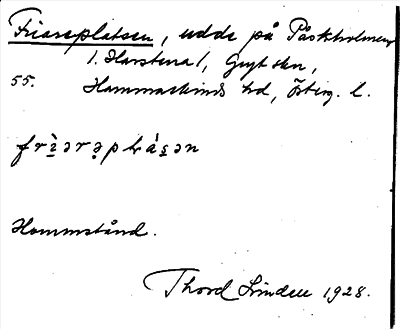 Friareplatsen, udde på Påskholmen
1. Harstena 1, Gryt skn,
55. Hammarkinds hd, Österg. l.
Hommstånd.
Thord Lindell 1928.